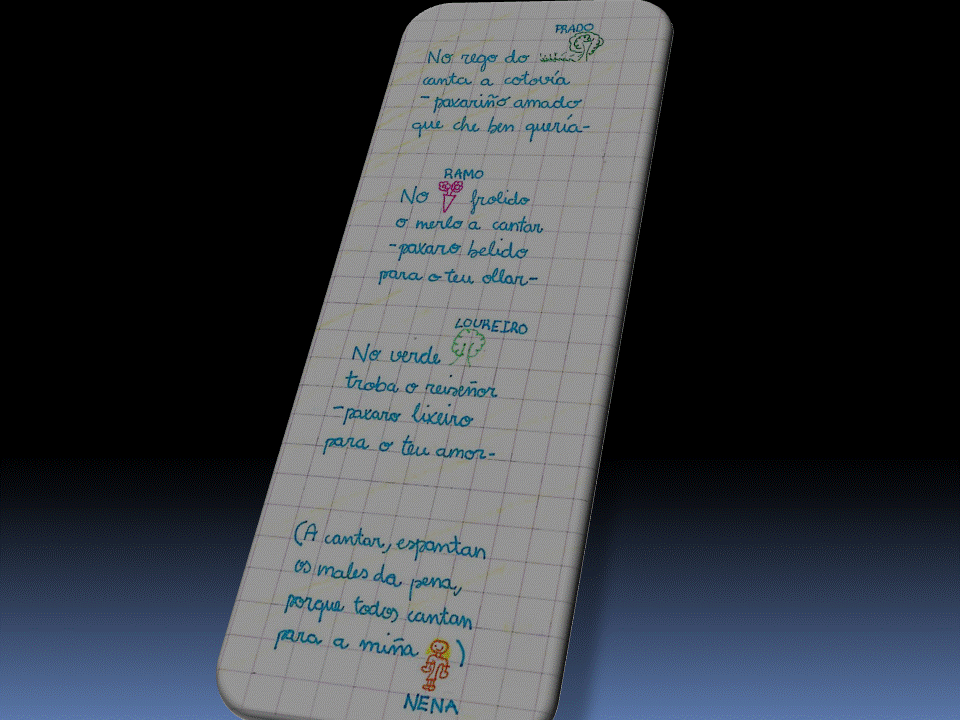 PRADO
No rego do
canta a cotovía
-paxariño amado
que che ben quería-
RAMO
No frolido
o merlo a cantar
-paxaro belido
para o teu ollar-
LOUREIRO
No verde
troba o reiseñor
-paxaro lixeiro
para o teu amor-
(A cantar, espantan
os males da pena,
porque todos cantan
para a miña )
NENA